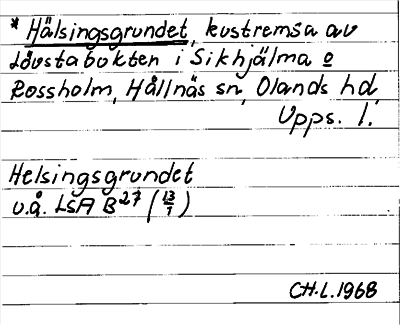 * Hälsingsgrundet, kustremsa av
Lövstabukten i Sikhjälma o
Rossholm, Hållnäs sn, Olands hd,
Upps. l.
Helsingsgrundet
u.å. LSA B27 (13/1)
CH.L.1968